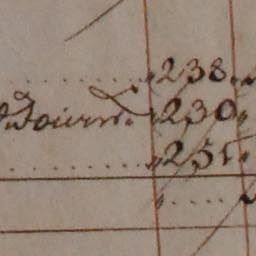 238.
Journ. 230.
251